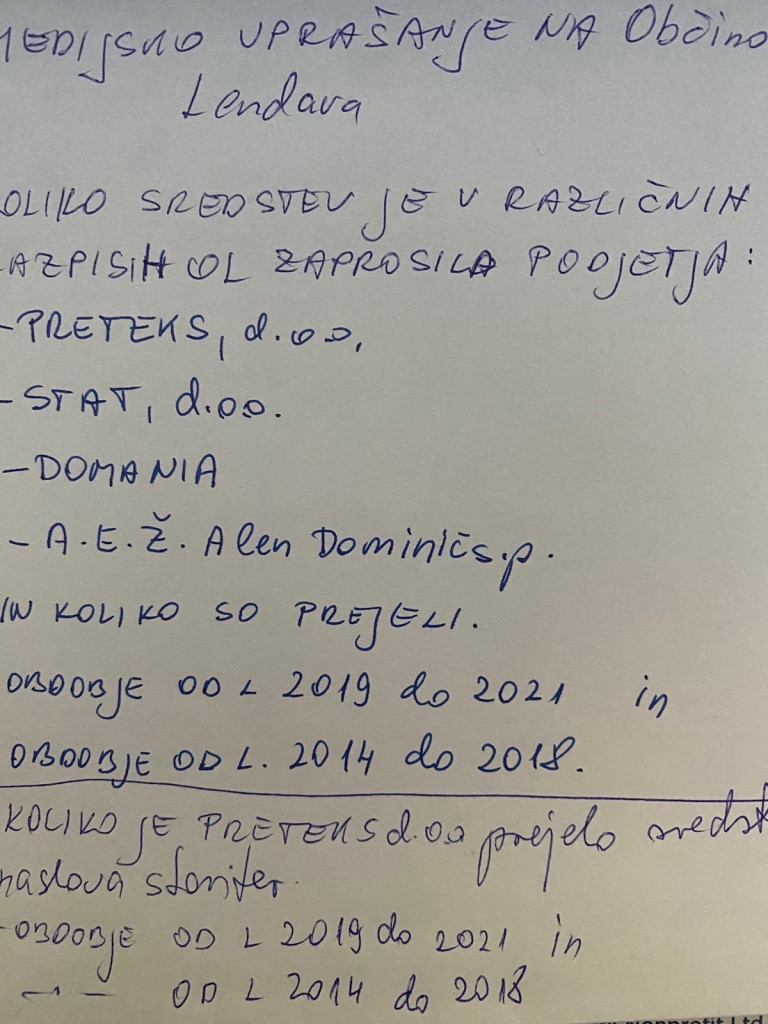 MEDIJSKO UPRAŠANJE NA Občino
Lendava
KOLIKO SREDSTEV JE V RAZLIČNIH
RAZPISIH OL ZAPROSILA PODJETJA:
-PRETEKS, d.o.o,
-STAT, d.o.o.
-DOMANIA
- A.E.Ž. Alen Dominić s.p.
IN KOLIKO SO PREJELI.
OBDOBJE OD L 2019 do 2021 in
OBDOBJE OD L. 2014 do 2018.
KOLIKO JE PRETEKS d.o.o prejelo sredst
naslova storitev.
-OBDOBJE OD L 2019 do 2021 in
-"- OD L 2014 do 2018